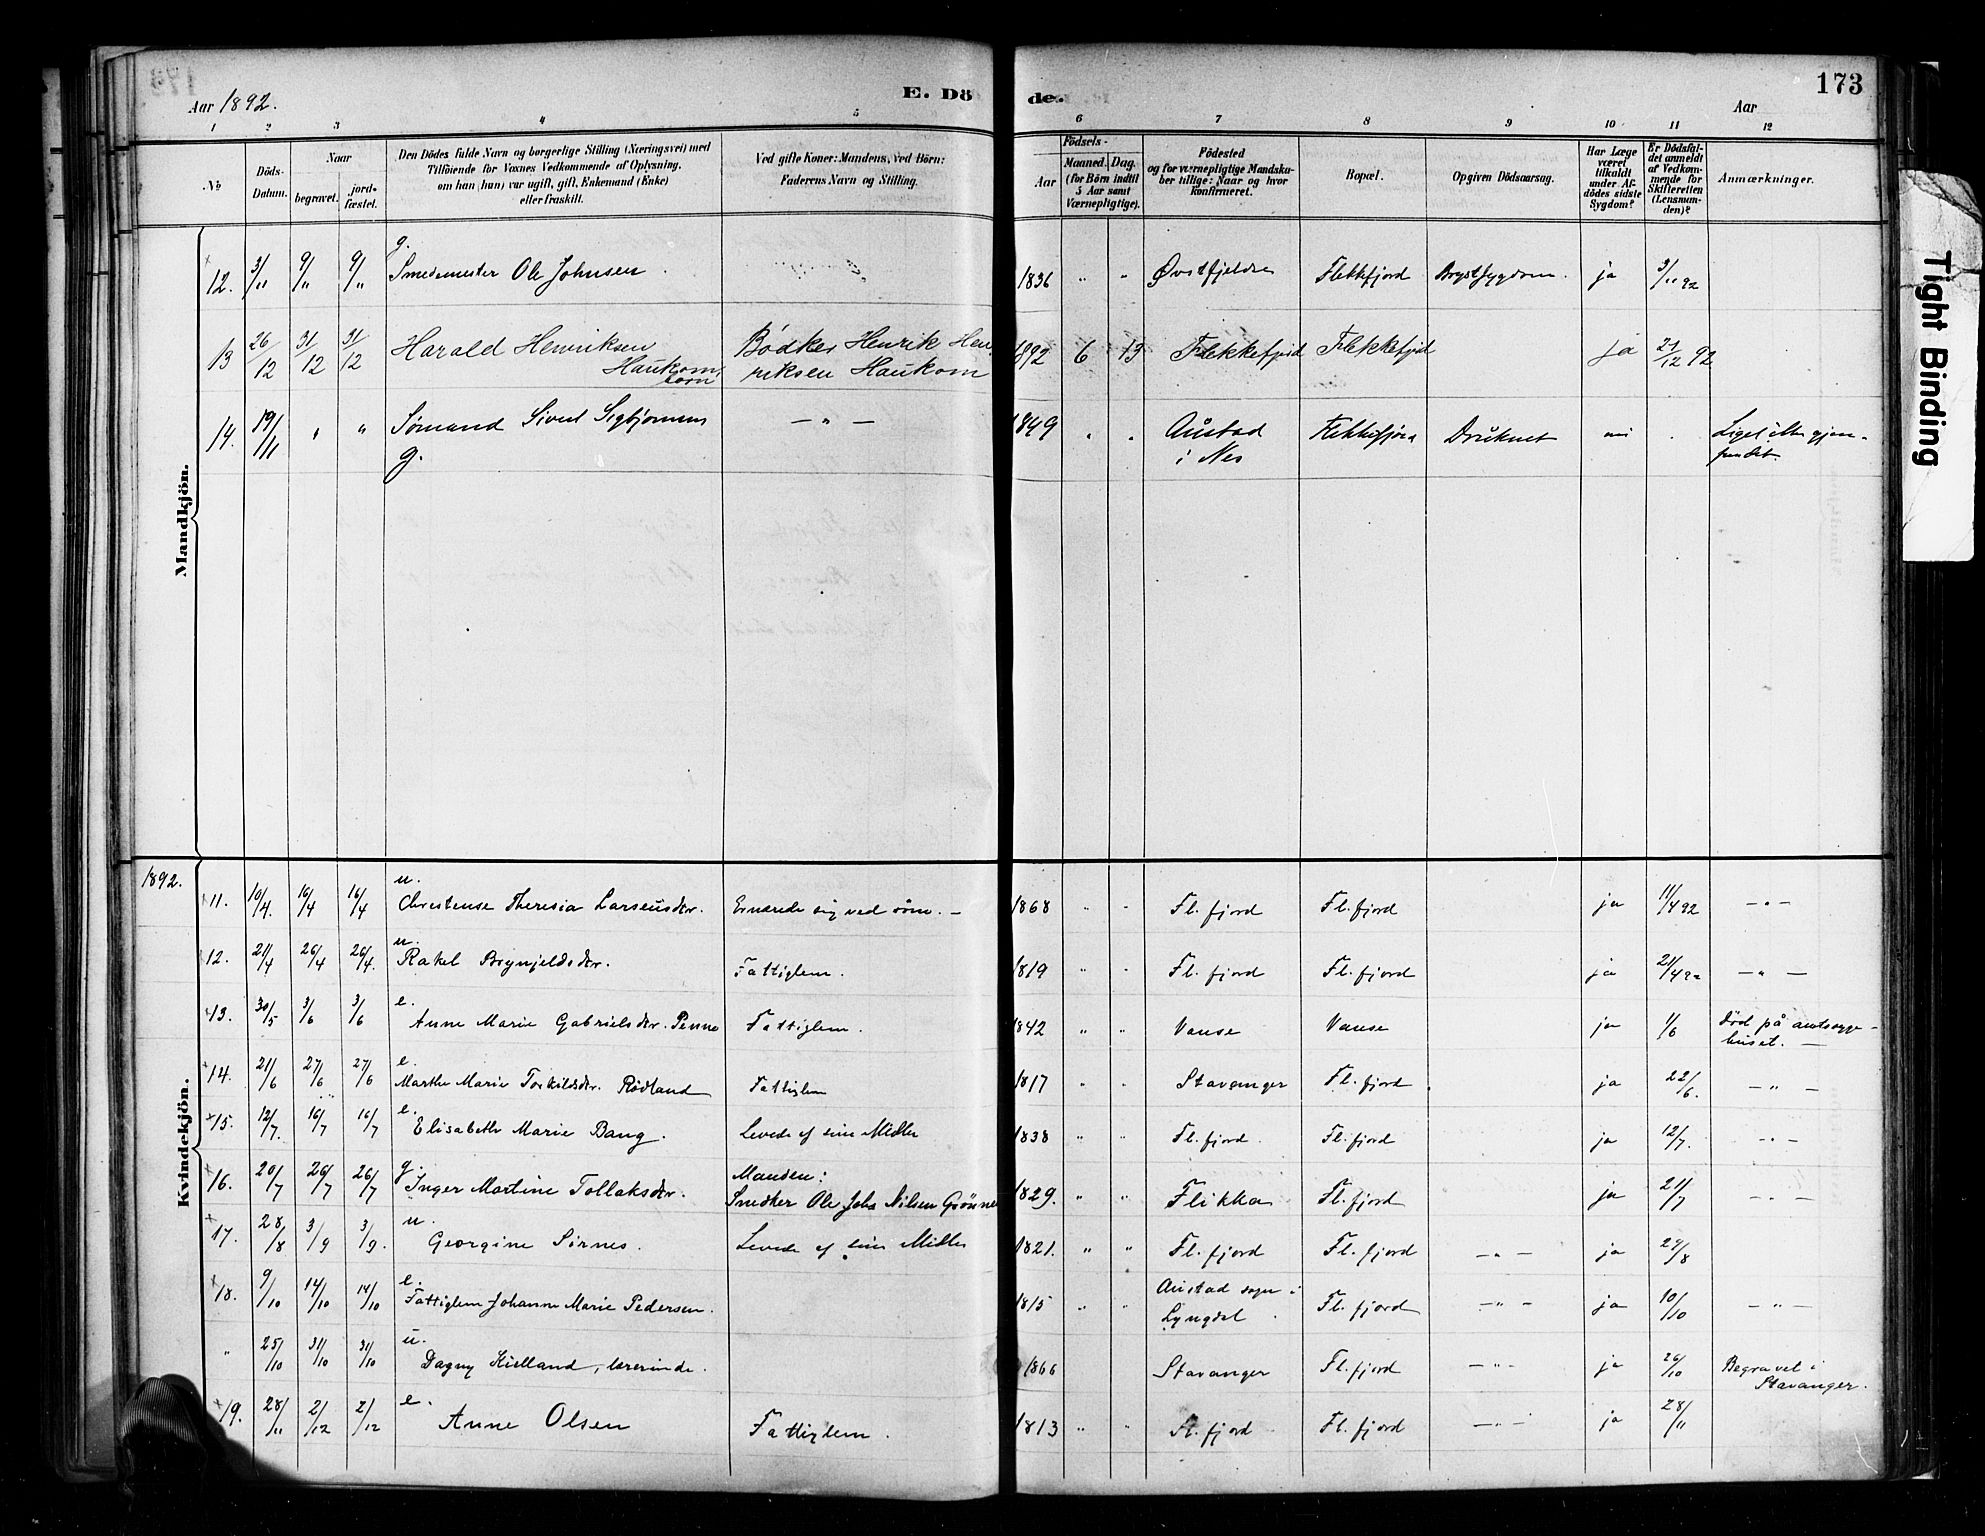 173
Aar 1892.
E. Dö de.
Aar
1 2 3 4 5 6 7 8 9 10 11 12
No
Döds-Datum.
Naar
begravet.
jord-fæstet.
Den Dödes fulde Navn og borgerlige Stilling (Næringsvei) med
Tilföiende for Voxnes Vedkommende af Oplysning,
om han (hun) var ugift, gift, Enkemand (Enke)
eller fraskilt.
Ved gifte Koner: Mandens, ved Börn:
Faderens Navn og Stilling.
Födsels-
Aar
Maaned. Dag.
(for Börn indtil
5 Aar samt
Værnepligtige).
Födested
og for værnepligtige Mandska-
ber tillige: Naar og hvor
konfirmeret.
Bopæl.
Opgiven Dödsaarsag.
Har Læge
været
tilkaldt
under Af-
dödes sidste
Sygdom?
Er Dödsfal-
det anmeldt
af Vedkom-
mende for
Skifteretten
(Lensman-
den)?
Anmærkninger.
Mandkjön.
g.
12. 3/11 9/11 9/11 Smedemester Ole Johnsen. 1836 " " Flekkefjord Brystsygdom. ja 3/11 92
13 26/12 31/12 31/12 Harald Henriksen Bødker Henrik Hen 1892 6 13 Flekkefjord Flekkefjord ja 27/12 92
Haukom, barn riksen Haukom
14. 19/11 " " Sømand Sivert Sigbjørnsen — " — 1849 " " Austad Flekkefjord Druknet nei . Liget ikke gjen-
g. i Nes fundet.
Kvindekjön.
1892.
u.
11. 10/4. 16/4 16/4 Christense Theresia Larsensdtr. Ernærede sig ved søm. — 1868 " " Fl. fjord Fl. fjord ja 11/4 92 — " —
u.
12. 21/4 26/4 26/4. Rakel Brynjeldsdtr. Fattiglem. 1819 " " Fl. fjord Fl. fjord ja 21/4 92 — " —
e.
13. 30/5 3/6 3/6 Anne Marie Gabrielsdtr. Penne Fattiglem. 1842 " " Vanse Vanse ja 1/6 død på amtssyge-
huset. —
e.
14. 21/6 27/6 27/6 Marthe Marie Torkildsdtr. Rødland Fattiglem 1817 " " Stavanger Fl. fjord. ja 22/6. — " —
e.
15. 12/7. 16/7 16/7 Elisabeth Marie Bang. Levede af sine Midler 1838 " " Fl. fjord. Fl. fjord ja 12/7. — " —
g. Manden:
16. 20/7 26/7 26/7 Inger Martine Tollaksdtr. Snedker Ole Johs Nilsen Grønnes 1829. " " Flikka Fl. fjord ja 21/7 — " —
u.
17. 28/8 3/9 3/9. Georgine Sirnes. Levede af sine Midler 1821. " " Fl. fjord Fl. fjord — " — ja 29/8
e. Austad sogn i
18. 9/10 14/10 14/10 Fattiglem Johanne Marie Pedersen. 1815 " " Lyngdal. Fl. fjord — " — ja 10/10 — " —
u.
" 25/10 31/10 31/10 Dagny Kielland, lærerinde. 1866 Stavanger Fl. fjord — " — ja 26/10 Begravet i
Stavanger.
e.
19. 28/11 2/12 2/12 Anne Olsen Fattiglem. 1813 " " Fl. fjord Fl. fjord — " — ja 28/11
Tight Binding